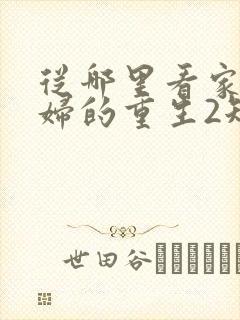 從哪里看家
婦的重生2短
世田谷